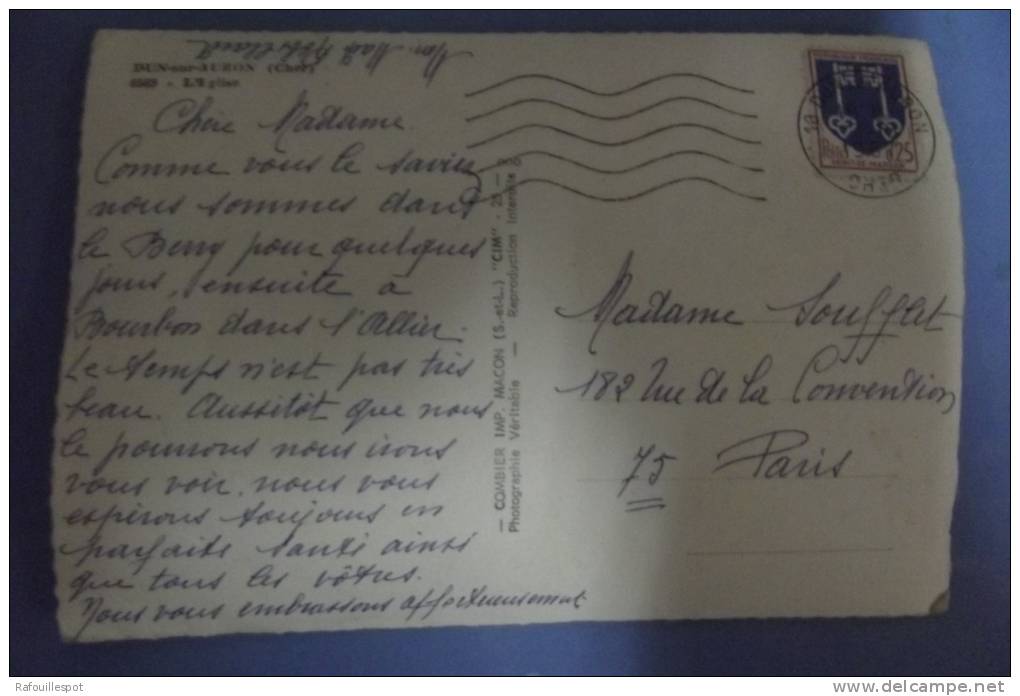 DUN-sur-AURON (Cher)
L'Eglise
Chère Madame
Comme vous le saviez
nous sommes dans
le Berry pour quelques
jours, ensuite à
Bourbon dans l'Allier.
Le temps n'est pas très
beau. Aussitôt que nous
le pourrons nous irons
vous voir. nous vous
espérons toujours en
parfaite santé ainsi
que tous les vôtres.
Nous vous embrassons affectueusement
— COMBIER IMP. MACON (S.-et-L.) "CIM"
Photographie Véritable — Reproduction Interdite
0,25
CHER
Madame Souffet
182 rue de la Convention
75 Paris
Rafouillespot
www.delcampe.net